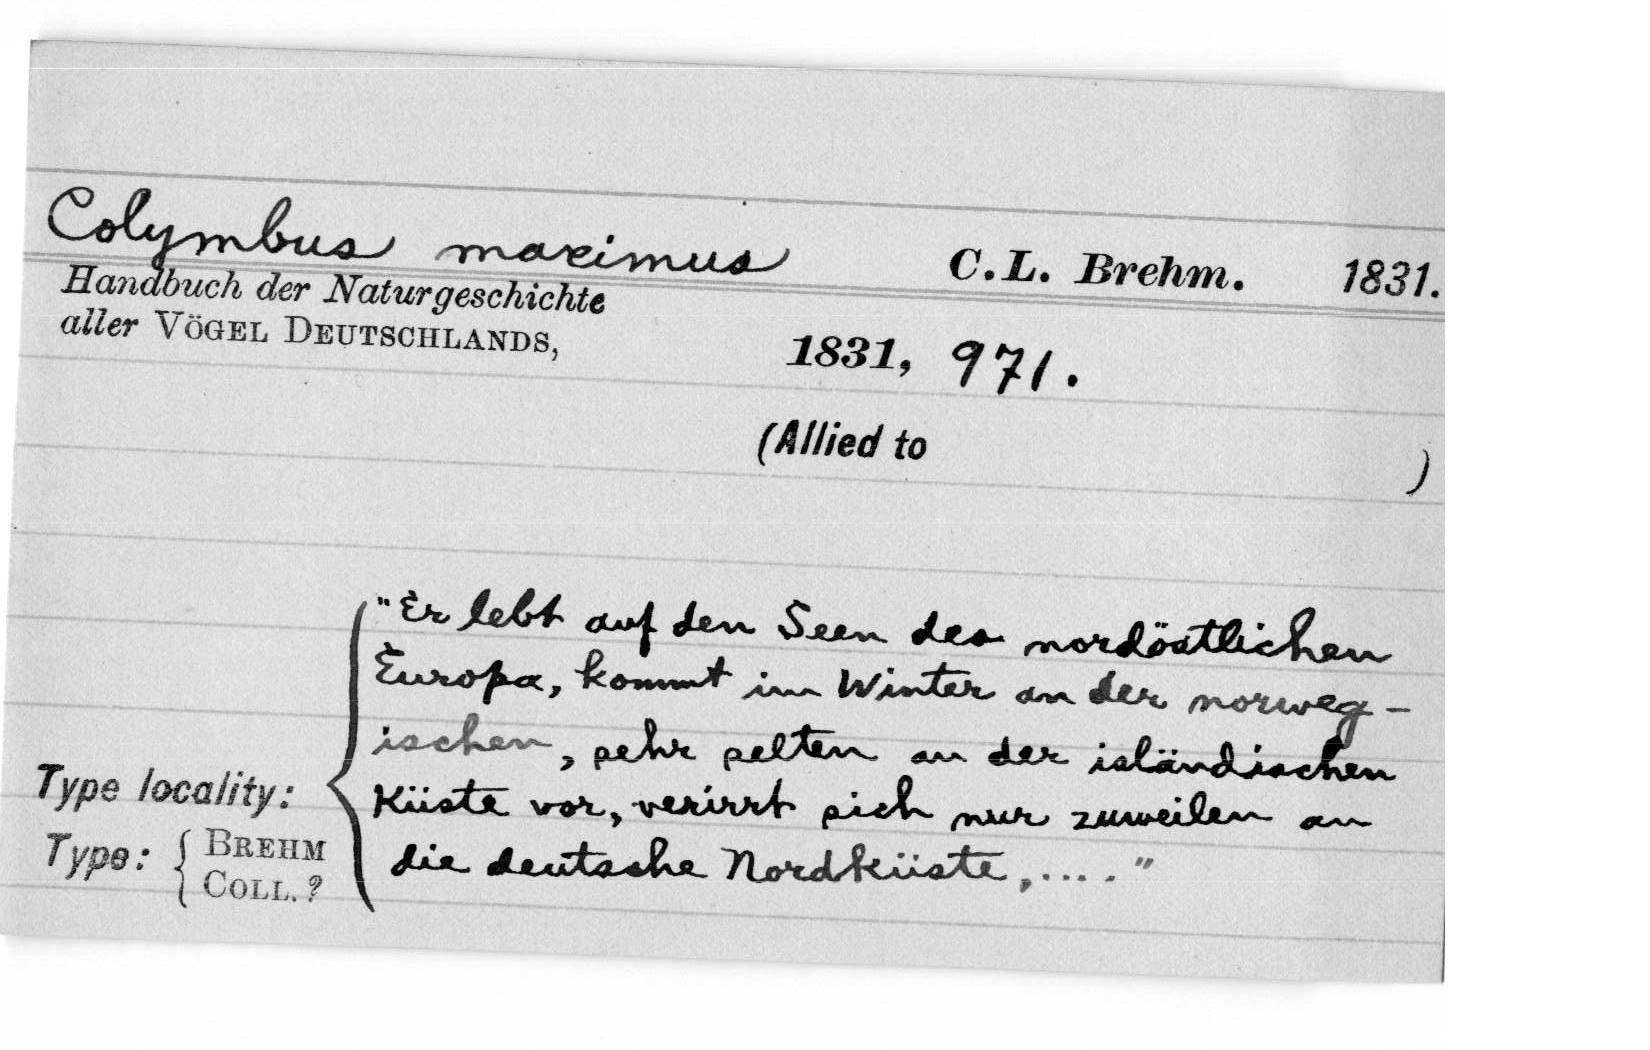 Colymbus maximus C.L. Brehm. 1831.
Handbuch der Naturgeschichte
aller VÖGEL DEUTSCHLANDS,
1831, 971.
(Allied to )
"Er lebt auf den Seen des nordöstlichen
Europa, kommt im Winter an der norweg-
ischen, sehr selten an der isländischen
Type locality: Küste vor, verirrt sich nur zuweilen an
Type: BREHM COLL. ? die deutsche Nordküste,...."